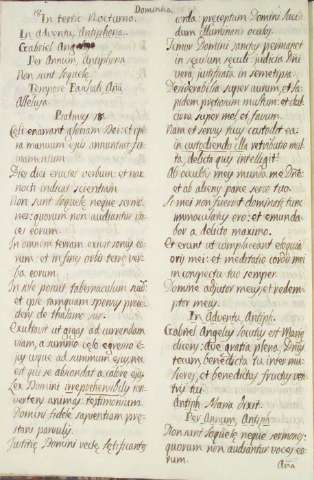 18.
Dominica.
In tertio Nocturno.
In Adventu, Antiphona.
Gabriel Angelus
Per Annum, Antiphona.
Non sunt loquelæ
Tempore Paschali Aña
Alleluja.
Psalmus 18.
Cæli enarrant gloriam Dei: et ope
ra manuum ejus annuntiat fir
mamentum
Dies diei eructat verbum: et nox
nocti indicat scientiam
Non sunt loquelæ neque sermo
nes: quorum non audiantur vo
ces eorum.
In omnem terram exivit sonus eo
rum: et in fines orbis terræ ver
ba eorum.
In sole posuit tabernaculum suum
et ipse tamquam sponsus proce
dens de thalamo suo.
Exultavit ut gigas ad currendam
viam, a summo cælo egressio e
jus
Lex Domini irreprehensibilis con
vertens animas: testimonium
Domini fidele sapientiam præ
stans parvulis.
Justitiæ Domini rectæ lætificantes
corda: præceptum Domini luci
dum illuminans oculos.
Timor Domini sanctus permanet
in sæculum sæculi: judicia Dñi
vera, justificata in semetipsa.
Desiderabilia super aurum, et la
pidem pretiosum multum: et dul
ciora super mel et favum.
Nam et servus tuus custodit ea:
in custodiendis illis retributio mul
ta, delicta quis intelligit!
Ab occultis meis munda me Dñe:
et ab alienis parce servo tuo.
Si mei non fuerint dominati, tunc
immaculatus ero: et emunda
bor a delicto maximo.
Et erunt ut complaceant eloquia
oris mei: et meditatio cordis mei
in conspectu tuo semper.
Domine adjutor meus, et redem
ptor meus.
In Adventu, Antiph.
Gabriel Angelus locutus est Mariæ
dicens: Ave gratia plena: Dñus
tecum, benedicta tu inter mu
lieres, et benedictus fructus ven
tris tui
Antiph. Maria dixit.
Per Annum, Antiph.
Non sunt loquelæ neque sermones:
quorum non audiantur voces eo
rum.
Aña